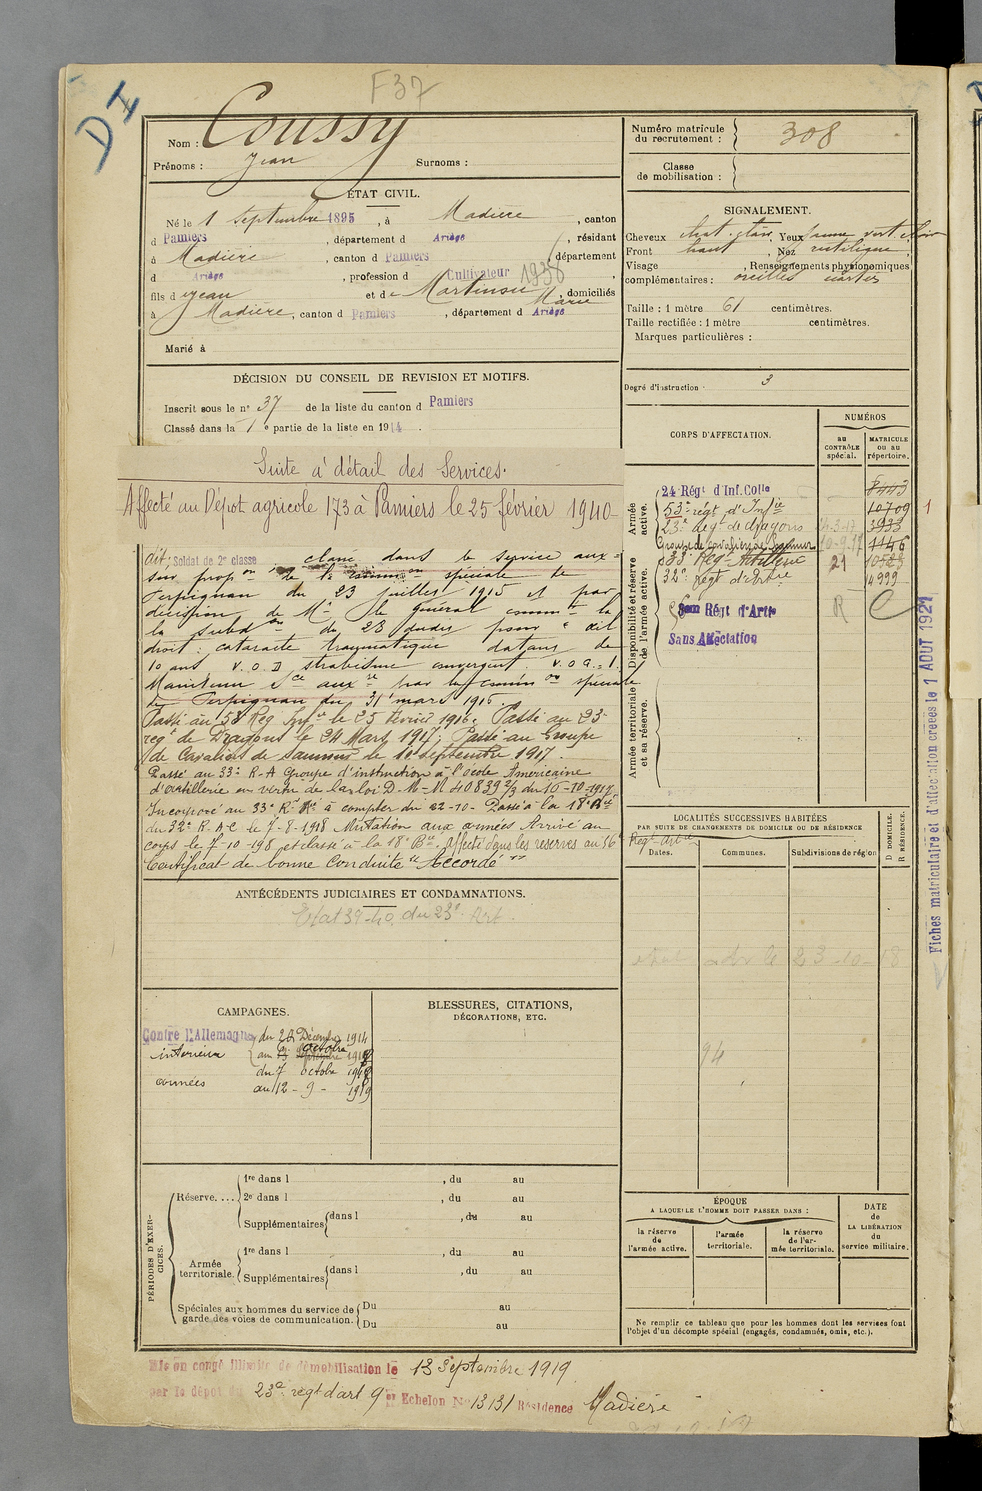 F37
DI
Nom : Coussy
Prénoms : Jean Surnoms :
Numéro matricule
du recrutement : 308
Classe
de mobilisation :
ÉTAT CIVIL.
Né le 1 Septembre 1895, à Madière, canton
d Pamiers, département d Ariège, résidant
à Madière, canton d Pamiers, département
d Ariège, profession d Cultivateur 1938,
fils d e Jean et de Martinou Marie, domiciliés
à Madière, canton d Pamiers, département d Ariège
Marié à
SIGNALEMENT.
Cheveux chat. clairs, Yeux jaune vert clair
Front haut, Nez rectiligne,
Visage , Renseignements physionomiques
complémentaires : oreilles
Taille : 1 mètre 61 centimètres.
Taille rectifiée : 1 mètre centimètres.
Marques particulières :
Degré d'instruction : 3
DÉCISION DU CONSEIL DE REVISION ET MOTIFS.
Inscrit sous le n° 37 de la liste du canton d Pamiers
Classé dans la 1e partie de la liste en 1914.
Suite à détail des Services.
Affecté au Dépot agricole 173 à Pamiers le 25 février 1940
dit, Soldat de 2e classe classé dans le service aux=
sur propon de la common spéciale de
Perpignan du 23 juillet 1915 et par
décision de Mr le général commt la
la subdon du 28 dudit pour " œil
droit : cataracte traumatique datant de
10 ans V.O.D strabisme convergent. V.O.G.=1.
Maintenu Sce auxre par la common spéciale
de Perpignan du 31 mars 1916.
Passé au 53 Rég Infie le 25 février 1916. Passé au 23e
regt de Dragons le 24 Mars 1917; Passé au Groupe
de Cavaliers de Saumur le 10 septembre 1917.
Passé au 33e R.A Groupe d'instruction à l'école Américaine
d'artillerie en vertu de la loi D.M-N 40839 2/3 du 16-10-1917
Incorporé au 33e Rt à compter du 22-10- Passé à la 18e Bie
du 32e R.A.C le 7-8-1918 Mutation aux armées Arrivé au
corps le 7-10-198 et classé à la 18e Bie. Affecté dans les réserves au 56e
Régt. art
Certificat de bonne conduite "Accordé"
CORPS D'AFFECTATION.
NUMÉROS
au
CONTRÔLE
spécial.
MATRICULE
ou au
répertoire.
Armée
active.
24 Régt d'Inf. Colle 8443
53e régt d'Infie 10709
23e Régt de dragons 24-3-17 3933
Groupe de Cavaliers de Saumur 10-9-17 1146
33e Régt Artillerie 21 10528
32e Régt d'Artie 14999
Disponibilité et réserve
de l'armée active.
Régt d'Artie R C
Sans Affectation
Armée territoriale
et sa réserve.
1
Fiches matriculaire et d'affectation créées le 1 AOUT 1921
LOCALITÉS SUCCESSIVES HABITÉES
PAR SUITE DE CHANGEMENTS DE DOMICILE OU DE RÉSIDENCE.
Dates. Communes. Subdivisions de région
D DOMICILE.
R RÉSIDENCE.
le 23-10-18
94
ANTÉCÉDENTS JUDICIAIRES ET CONDAMNATIONS.
Etat 39-40 du 23e Art.
CAMPAGNES.
Contre l'Allemagne du 20 Décembre 1914
intérieur au 6 octobre 1918
du 7 octobre 1918
armées au 12 - 9 - 1919
BLESSURES, CITATIONS,
DÉCORATIONS, ETC.
PÉRIODES D'EXER-
CICES.
Réserve.... 1re dans l , du au
2e dans l , du au
Supplémentaires dans l , du au
Armée
territoriale. 1re dans l , du au
Supplémentaires dans l , du au
Spéciales aux hommes du service de
garde des voies de communication. Du au
Du au
ÉPOQUE
A LAQUELLE L'HOMME DOIT PASSER DANS :
la réserve
de
l'armée active.
l'armée
territoriale.
la réserve
de l'ar-
mée territoriale.
DATE
de
LA LIBÉRATION
du
service militaire.
Ne remplir ce tableau que pour les hommes dont les services font
l'objet d'un décompte spécial (engagés, condamnés, omis, etc.).
Mis en congé illimité de démobilisation le 13 Septembre 1919
par le dépôt du 23e regt d'art 9e Echelon No 13131 Résidence Madière